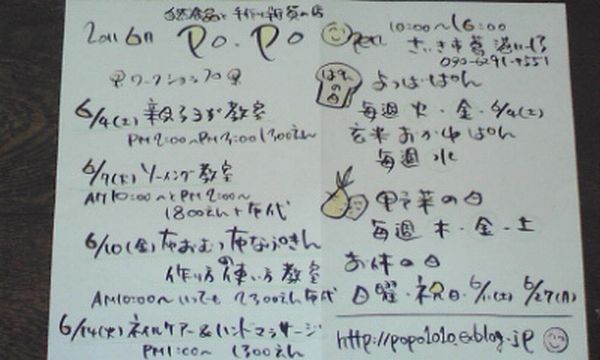 自然食品と手作り雑貨の店
2011 6月 PO.PO
ワークショップ
6/4(土) 親子ヨガ教室
PM2:00〜PM3:00 1300えん
6/7(火) ソーイング教室
AM10:00〜とPM2:00〜
1800えん+布代
6/10(金) 布おむつ布なぷきん
の作り方使い方教室
AM10:00〜いつでも 2300えん布代
6/14(火) ネイルケアー&ハンドマッサージ
PM1:00〜 1300えん
10:00〜16:00
さいき市
090-6291-9551
ぱんの日
よつばぱん
毎週 火・金・6/4(土)
玄米おかゆぱん
毎週 水
野菜の日
毎週 木・金・土
お休の日
日曜・祝日・6/11(土) 6/27(月)
http://popo1010.exblog.jp